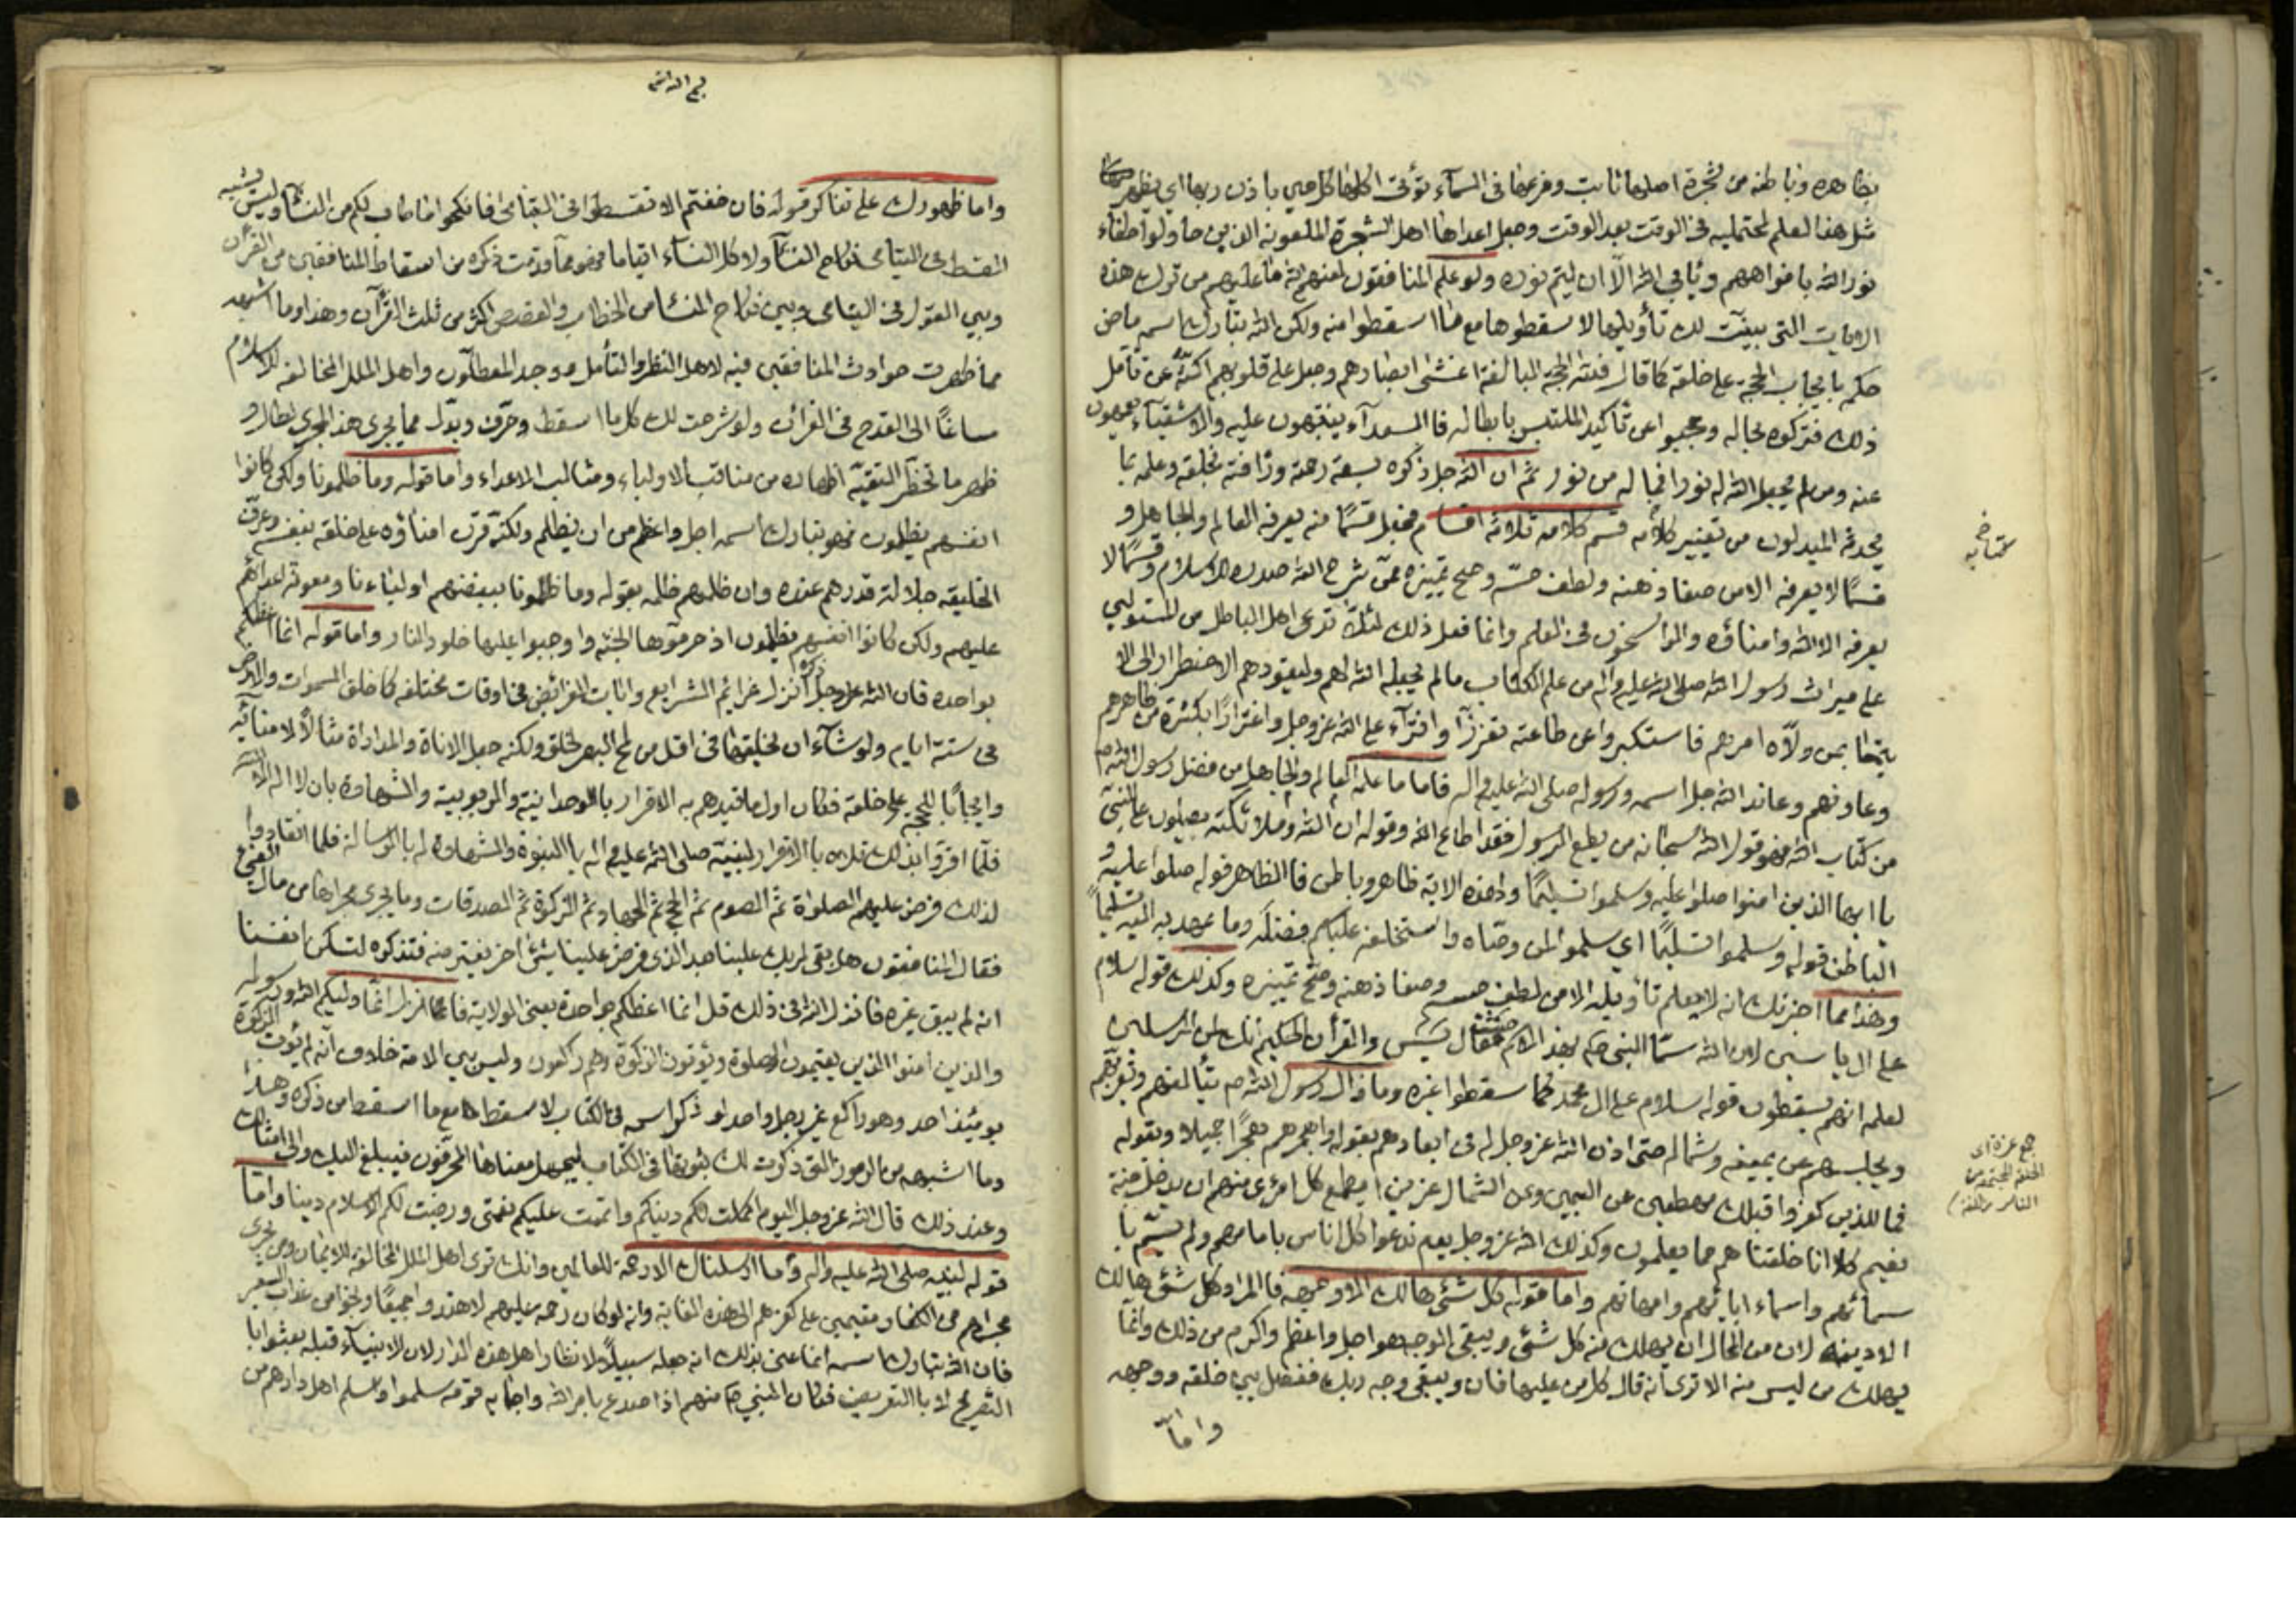 بظاهره وباطنه من شجرة اصلها ثابت وفرعها فى السمآء تؤتى اكلها كل حين باذن ربها اى يظهر
مثل هذا العلم لمحتمليه فى الوقت بعد الوقت وجعل اعداءها اهل الشجرة الملعونة الذين حاولوا اطفاء
نور الله بافواههم ويأبى الله الّا ان يتم نوره ولو علم المنافقون لعنهم الله ما عليهم من ترك هذه
الايات التى بينت لك تأويلها لاسقطوها مع ما اسقطوا منه ولكن الله تبارك اسمه ماض
حكمه بايجاب الحجة على خلقه كما قال فلله الحجة البالغة اغشى ابصارهم وجعل على قلوبهم اكنّة عن تأمل
ذلك فتركوه بحاله وحجبوا عن تأكيد الملتبس بابطاله فالسعدآء ينتبهون عليه والاشقيآء يعمهون
عنه ومن لم يجعل الله له نورا فما له من نور ثم ان الله جل ذكره بسعة رحمته ورأفته بخلقه وعلمه بما
يحدثه المبدلون من تغيير كلامه قسم كلامه ثلاثة اقسام فجعل قسمًا منه يعرفه العالم والجاهل و
قسمًا لا يعرفه الا من صفا ذهنه ولطف حسّه وصح تمييزه ممّن شرح الله صدره للاسلام وقسمًا لا
يعرفه الا الله وامناؤه والراسخون فى العلم وانما فعل ذلك لئلا يدعى اهل الباطل من المستولين
على ميراث رسول الله صلى الله عليه واله من علم الكتاب ما لم يجعله الله لهم وليقودهم الاضطرار الى الا
يتمار بمن ولّاه امرهم فاستكبروا عن طاعته تعززًا وافترآء على الله عز وجل واغترارًا بكثرة من ظاهرهم
وعاونهم وعاند الله جل اسمه ورسوله صلى الله عليه واله فاما ما علمه العالم والجاهل من فضل رسول الله ص
من كتاب الله فهو قول الله سبحانه من يطع الرسول فقد اطاع الله وقوله ان الله وملائكته يصلون على النبى
يا ايها الذين امنوا صلوا عليه وسلموا تسليمًا ولهذه الاية ظاهر وباطن فالظاهر قوله صلوا عليه و
الباطن قوله وسلموا تسليمًا اى سلموا لمن وصّاه واستخلفه عليكم فضله وما عهد به اليه تسليمًا
وهذا مما اخبرتك انه لا يعلم تأويله الا من لطف حسه وصفا ذهنه وصح تمييزه وكذلك قوله سلام
على ال ياسين لان الله سمّا النبى ص بهذا الاسم حيث قال يس والقرآن الحكيم انك لمن المرسلين
لعلمه انهم يسقطون قوله سلام على ال محمد كما اسقطوا غيره وما زال رسول الله ص يتألفهم ويقربهم
ويجلسهم عن يمينه وشماله حتى اذن الله عز وجل له فى ابعادهم بقوله واهجرهم هجرًا جميلا وبقوله
فما للذين كفروا قبلك مهطعين عن اليمين وعن الشمال عزين ايطمع كل امرئ منهم ان يدخل جنة
نعيم كلا انا خلقناهم مما يعلمون وكذلك الله عز وجل يوم ندعوا كل اناس بامامهم ولم يسم با
سمائهم واسماء ابائهم وامهاتهم واما قوله كل شئ هالك الا وجهه فالمراد كل شئ هالك
الا دينه لان من المحال ان يهلك منه كل شئ ويبقى الوجه هو اجل واعظم واكرم من ذلك وانما
يهلك من ليس منه الا ترى انه قال كل من عليها فان ويبقى وجه ربك ففصل بين خلقه ووجهه
واما
جمع عزة اى
الحلقة المجتمعة من
الناس
واما ظهورك على تناكر قوله فان خفتم الا تقسطوا فى اليتامى فانكحوا ما طاب لكم من النسآء وليس يشبه
القسط فى اليتامى نكاح النسآء ولا كل النساء ايتاما فهو مما قدمت ذكره من اسقاط المنافقين من القرآن
وبين القول فى اليتامى وبين نكاح النساء من الخطاب والقصص اكثر من ثلث القرآن وهذا وما اشبهه
مما ظهرت حوادث المنافقين فيه لاهل النظر والتأمل ووجد المعطلون واهل الملل المخالفه للاسلام
مساغًا الى القدح فى القرآن ولو شرحت لك كل ما اسقط وحرّف وبدّل مما يجرى هذا المجرى لطال و
ظهر ما تحظر التقيّة اظهاره من مناقب الاولياء ومثالب الاعداء واما قوله وما ظلمونا ولكن كانوا
انفسهم يظلمون فهو تبارك اسمه اجل واعظم من ان يظلم ولكنه قرن امناؤه على خلقه بنفسه وعرّف
الخليقه جلالة قدرهم عنده وان ظلمهم ظلمه بقوله وما ظلمونا ببغضهم اوليائنا ومعونة اعدائهم
عليهم ولكن كانوا انفسهم يظلمون اذ حرموها الجنة واوجبوا عليها خلود النار واما قوله انما اعظكم
بواحدة فان الله عز وجل ذكره انزل عزائم الشرايع وايات الفرائض فى اوقات مختلفه كما خلق السموات والارض
فى ستة ايام ولو شآء ان يخلقها فى اقل من لمح البصر لخلق ولكنه جعل الاناة والمداراة مثالًا لامنائه
وايجابًا للحجه على خلقه فكان اول ما قيدهم به الاقرار بالوحدانية والربوبية والشهادة بان لا اله الا الله
فلمّا اقروا بذلك تلاه بالاقرار لنبيّه صلى الله عليه واله بالنبوة والشهادة له بالرسالة فلما انقادوا
لذلك فرض عليهم الصلوة ثم الصوم ثم الحج ثم الجهاد ثم الزكوة ثم الصدقات وما يجرى مجراها من مال الفئ
فقال المنافقون هل بقى لربك علينا بعد الذى فرض علينا شئ اخر يفترضه فتذكره لتسكن انفسنا
انه لم يبق غيره فانزل الله فى ذلك قل انما اعظكم بواحدة يعنى الولاية فانزل انما وليكم الله ورسوله
والذين امنوا الذين يقيمون الصلوة ويؤتون الزكوة وهم راكعون وليس بين الامة خلاف انه لم يؤت الزكوة
يومئذ احد وهو راكع غير رجل واحد لو ذكر اسمه فى الكتاب لاسقط مع ما اسقط من ذكره وهذا
وما اشبهه من الرموز التى ذكرت لك ثبوتها فى الكتاب ليجهل معناها المحرفون فيبلغ اليك والى امثالك
وعند ذلك قال الله عز وجل اليوم اكملت لكم دينكم واتممت عليكم نعمتى ورضيت لكم الاسلام دينا واما
قوله لنبيه صلى الله عليه واله وما ارسلناك الا رحمة للعالمين وانك ترى اهل الملل المخالفة للايمان ومن يجرى
مجراهم من الكفار مقيمين على كفرهم الى هذه الغاية وانه لو كان رحمة عليهم لاهتدوا جميعًا ونجوا من عذاب السعير
فان الله تبارك اسمه انما عنى بذلك انه جعله سبيلًا لانظار اهل هذه الدار لان الانبيآء قبله بعثوا با
التصريح لا بالتعريض فكان النبى ص منهم اذا صدع بامر الله واجابه قومه سلموا وسلم اهل دارهم من